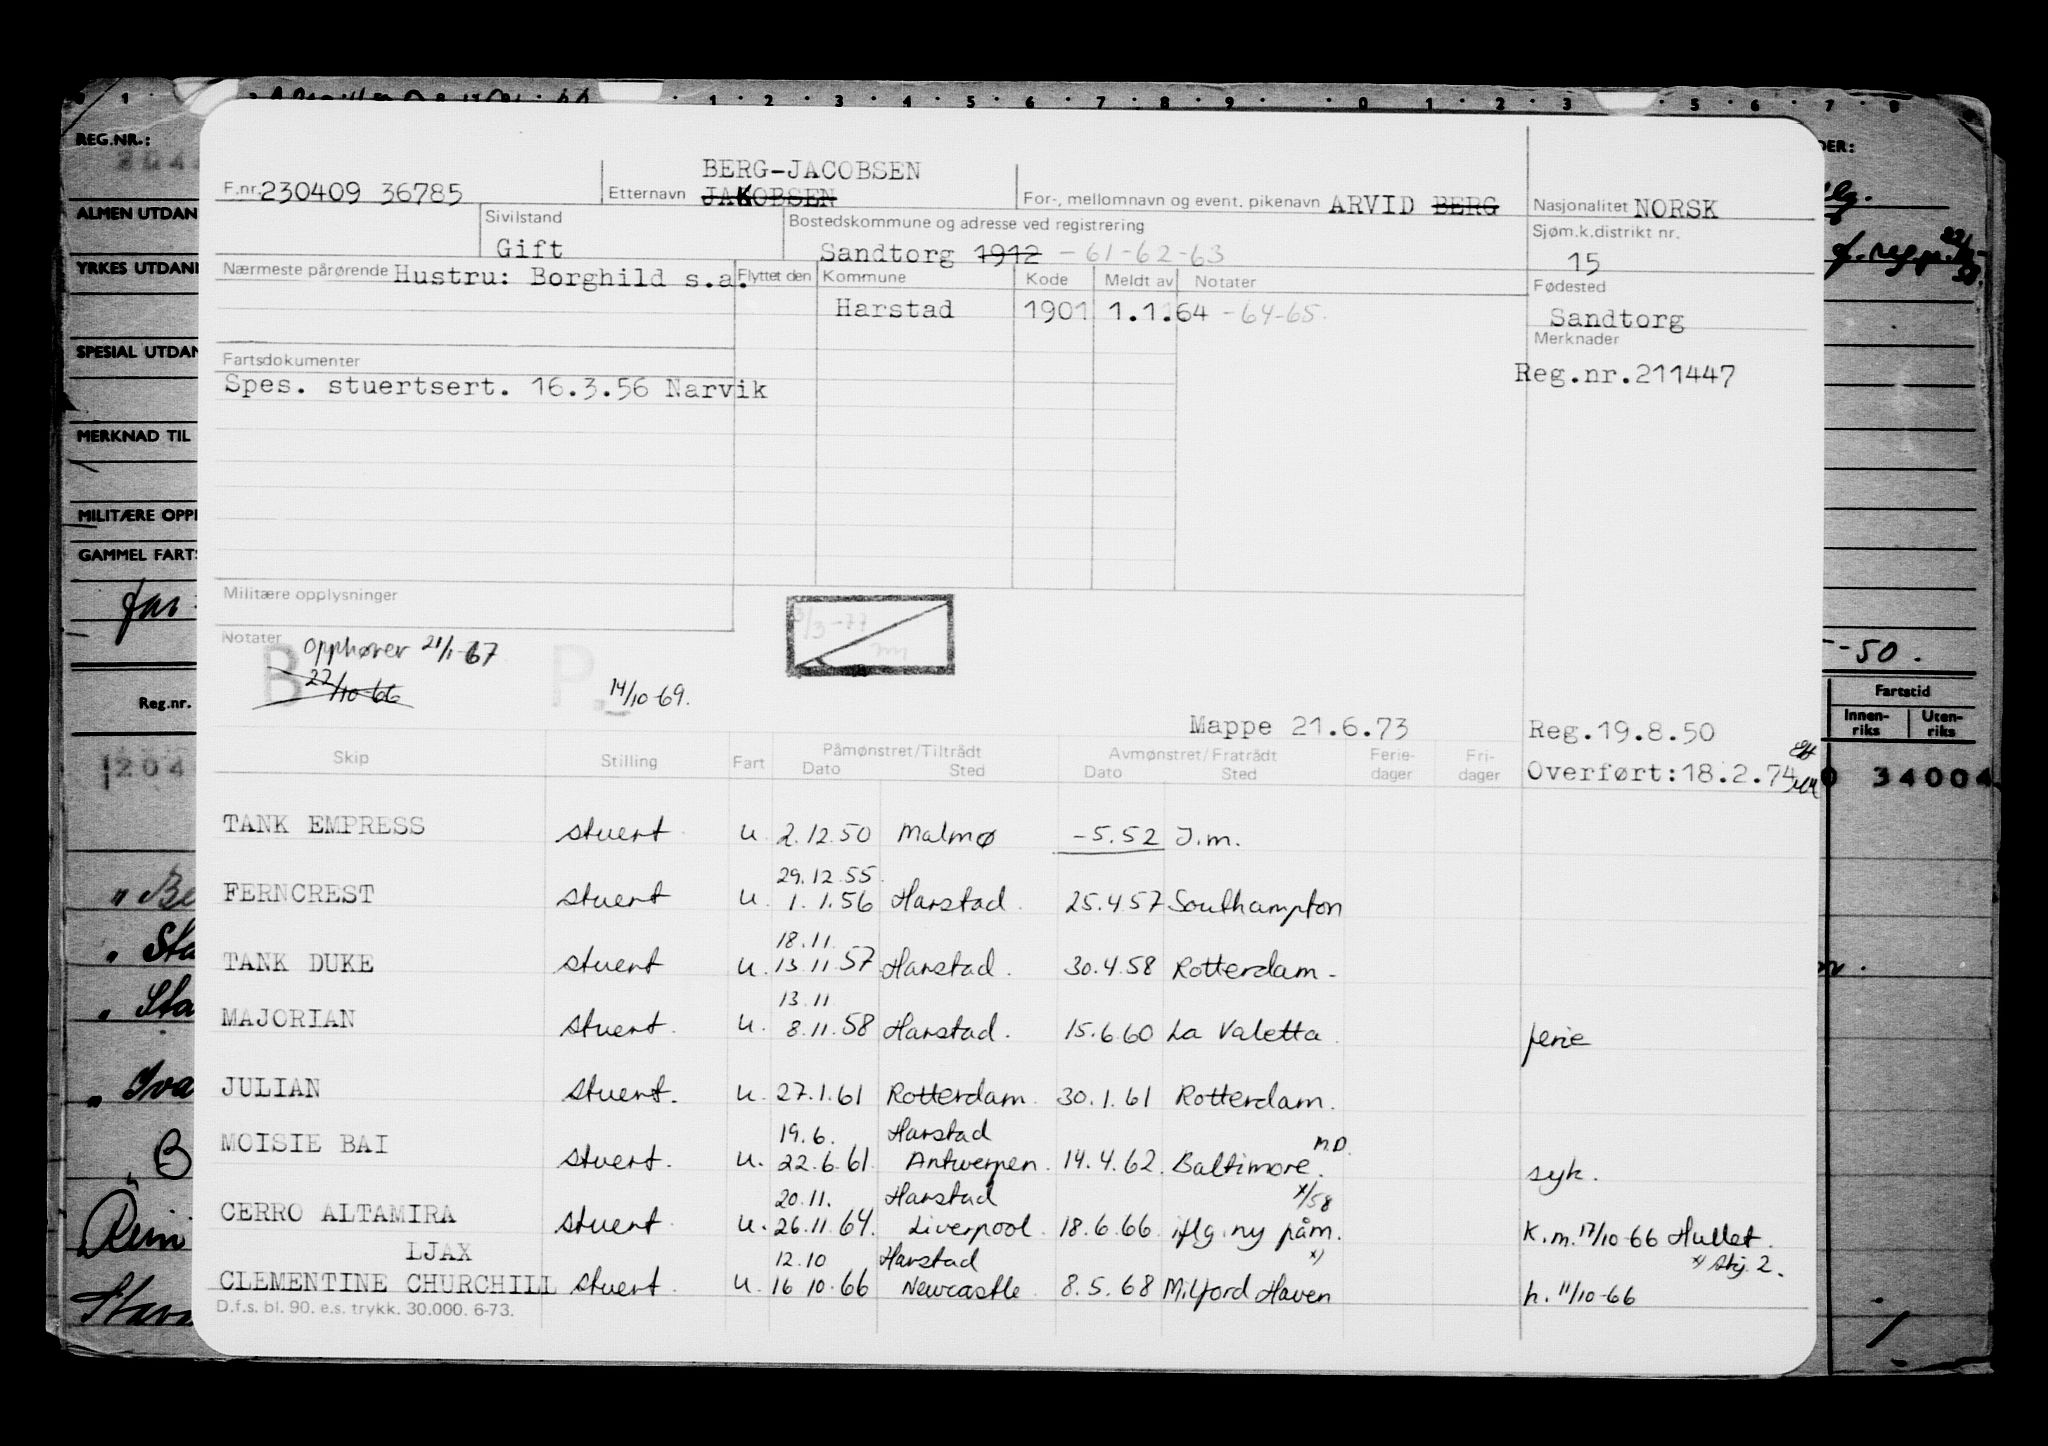 REG.NR.:
F.nr. 230409 36785
Etternavn BERG-JACOBSEN
JAKOBSEN
For-, mellomnavn og event. pikenavn ARVID BERG
Nasjonalitet NORSK
ALMEN UTDAN
Sivilstand
Gift
Bostedskommune og adresse ved registrering
Sandtorg 1912 -61-62-63
Sjøm.k.distrikt nr.
15
YRKES UTDAN
Nærmeste pårørende Hustru: Borghild s.a.
Flyttet den Kommune Kode Meldt av Notater
Harstad 1901 1.1.64 -64-65.
Fødested
Sandtorg
Merknader
Reg.nr.211447
SPESIAL UTDAN
Fartsdokumenter
Spes. stuertsert. 16.3.56 Narvik
MERKNAD TIL
MILITÆRE OPPL
GAMMEL FARTS
Militære opplysninger
Notater
B Opphører 21/1-67
22/10-66
P. 14/10-69.
3/3-77
-50.
Mappe 21.6.73
Reg.19.8.50
Overført:18.2.74
Reg.nr.
Fartstid
Innen-riks Uten-riks
Skip Stilling Fart Påmønstret/Tiltrådt Dato Sted Avmønstret/Fratrådt Dato Sted Ferie-dager Fri-dager
204
0 34004
TANK EMPRESS stuert u. 2.12.50 Malmø -5.52 I.m.
29.12.55.
FERNCREST stuert u. 1.1.56 Harstad. 25.4.57 Southampton
18.11.
TANK DUKE stuert u. 13.11.57 Harstad. 30.4.58 Rotterdam-
13.11
MAJORIAN stuert. u. 8.11.58 Harstad. 15.6.60 La Valetta. ferie
JULIAN stuert. u. 27.1.61 Rotterdam. 30.1.61 Rotterdam.
19.6. Harstad
MOISIE BAI stuert. u. 22.6.61. Antwerpen. 14.4.62. Baltimore. M.D. syk.
20.11. Harstad x/58
CERRO ALTAMIRA stuert. u. 26.11.64. Liverpool. 18.6.66. iflg. ny påm. K.m. 17/10-66 Hullet.
LJAX 12.10 Harstad x) x) Stg. 2.
CLEMENTINE CHURCHILL stuert. u. 16 10.66 Newcastle. 8.5.68 Milford Haven h. 11/10-66
D.f.s. bl. 90. e.s. trykk. 30.000. 6-73.